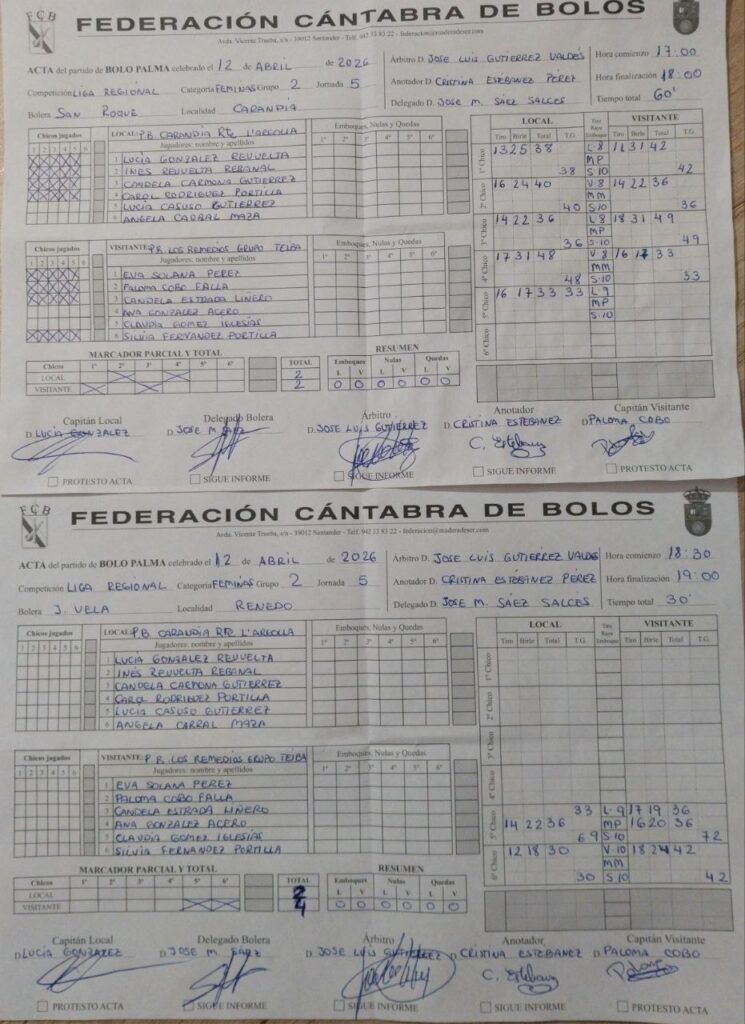 FCB
FEDERACIÓN CÁNTABRA DE BOLOS
Avda. Vicente Trueba, s/n - 39012 Santander - Telf. 942 33 83 22 - federacion@maderadeser.com
ACTA del partido de BOLO PALMA celebrado el 12 de ABRIL de 2026
Competición LIGA REGIONAL Categoría FEMINAS Grupo 2 Jornada 5
Bolera SAN ROQUE Localidad CARANDIA
Árbitro D. JOSE LUIS GUTIERREZ VALDÉS Hora comienzo 17:00
Anotador D. CRISTINA ESTEBANEZ PÉREZ Hora finalización 18:00
Delegado D. JOSE M. SAEZ SALCES Tiempo total 60'
Chicos jugados LOCAL: P.B. CARANDIA Rte L'ARGOLLA Emboques, Nulas y Quedas
1 2 3 4 5 6 Jugadores: nombre y apellidos 1º 2º 3º 4º 5º 6º
1 LUCÍA GONZALEZ REVUELTA
2 INES REVUELTA REBANAL
3 CANDELA CARMONA GUTIERREZ
4 CAROL RODRIGUEZ PORTILLA
5 LUCIA CASUSO GUTIERREZ
6 ANGELA CARRAL MAZA
Chicos jugados VISITANTE: P.B. LOS REMEDIOS GRUPO TEIBA Emboques, Nulas y Quedas
1 2 3 4 5 6 Jugadores: nombre y apellidos 1º 2º 3º 4º 5º 6º
1 EVA SOLANA PEREZ
2 PALOMA COBO FALLA
3 CANDELA ESTRADA LIÑERO
4 ANA GONZALEZ ACERO
5 CLAUDIA GOMEZ IGLESÍAS
6 SILVIA FERNANDEZ PORTILLA
LOCAL Tiro Raya Emboque VISITANTE
Tiro Birle Total T.G. Tiro Birle Total T.G.
1º Chico 13 25 38 L-8 11 31 42
MP
38 S-10 42
2º Chico 16 24 40 V-8 14 22 36
MM
40 S-10 36
3º Chico 14 22 36 L-8 18 31 49
MP
36 S-10 49
4º Chico 17 31 48 V-8 16 17 33
MM
48 S-10 33
5º Chico 16 17 33 33 L-9
MP
S-10
6º Chico
MARCADOR PARCIAL Y TOTAL
Chicos 1º 2º 3º 4º 5º 6º TOTAL
LOCAL 2
VISITANTE 2
RESUMEN
Emboques Nulas Quedas
L V L V L V
0 0 0 0 0 0
Capitán Local Delegado Bolera Árbitro Anotador Capitán Visitante
D. LUCÍA GONZALEZ D. JOSE M. SAEZ D. JOSE LUIS GUTIERREZ D. CRISTINA ESTEBANEZ D. PALOMA COBO
PROTESTO ACTA SIGUE INFORME SIGUE INFORME SIGUE INFORME PROTESTO ACTA
FCB
FEDERACIÓN CÁNTABRA DE BOLOS
Avda. Vicente Trueba, s/n - 39012 Santander - Telf. 942 33 83 22 - federacion@maderadeser.com
ACTA del partido de BOLO PALMA celebrado el 12 de ABRIL de 2026
Competición LIGA REGIONAL Categoría FEMINAS Grupo 2 Jornada 5
Bolera J. VELA Localidad RENEDO
Árbitro D. JOSE LUÍS GUTIERREZ VALDES Hora comienzo 18:30
Anotador D. CRISTINA ESTÉBANEZ PÉREZ Hora finalización 19:00
Delegado D. JOSE M. SÁEZ SALCES Tiempo total 30'
Chicos jugados LOCAL: P.B. CARANDIA Rte L'ARGOLLA Emboques, Nulas y Quedas
1 2 3 4 5 6 Jugadores: nombre y apellidos 1º 2º 3º 4º 5º 6º
1 LUCIA GONZALEZ REVUELTA
2 INÉS REVUELTA REBANAL
3 CANDELA CARMONA GUTIERREZ
4 CAROL RODRIGUEZ PORTILLA
5 LUCIA CASUSO GUTIERREZ
6 ANGELA CARRAL MAZA
Chicos jugados VISITANTE: P.B. LOS REMEDIOS GRUPO TEIBA Emboques, Nulas y Quedas
1 2 3 4 5 6 Jugadores: nombre y apellidos 1º 2º 3º 4º 5º 6º
1 EVA SOLANA PEREZ
2 PALOMA COBO FALLA
3 CANDELA ESTRADA LIÑERO
4 ANA GONZALEZ ACERO
5 CLAUDIA GOMEZ IGLESÍAS
6 SILVIA FERNANDEZ PORTILLA
LOCAL Tiro Raya Emboque VISITANTE
Tiro Birle Total T.G. Tiro Birle Total T.G.
1º Chico
2º Chico
3º Chico
4º Chico
5º Chico 33 L-9 17 19 36
14 22 36 MP 16 20 36
69 S-10 72
6º Chico 12 18 30 V-10 18 24 42
MM
30 S-10 42
MARCADOR PARCIAL Y TOTAL
Chicos 1º 2º 3º 4º 5º 6º TOTAL
LOCAL 2
VISITANTE 4
RESUMEN
Emboques Nulas Quedas
L V L V L V
0 0 0 0 0 0
Capitán Local Delegado Bolera Árbitro Anotador Capitán Visitante
D. LUCÍA GONZALEZ D. JOSE M. SAEZ D. JOSE LUIS GUTIERREZ D. CRISTINA ESTEBANEZ D. PALOMA COBO
PROTESTO ACTA SIGUE INFORME SIGUE INFORME SIGUE INFORME PROTESTO ACTA